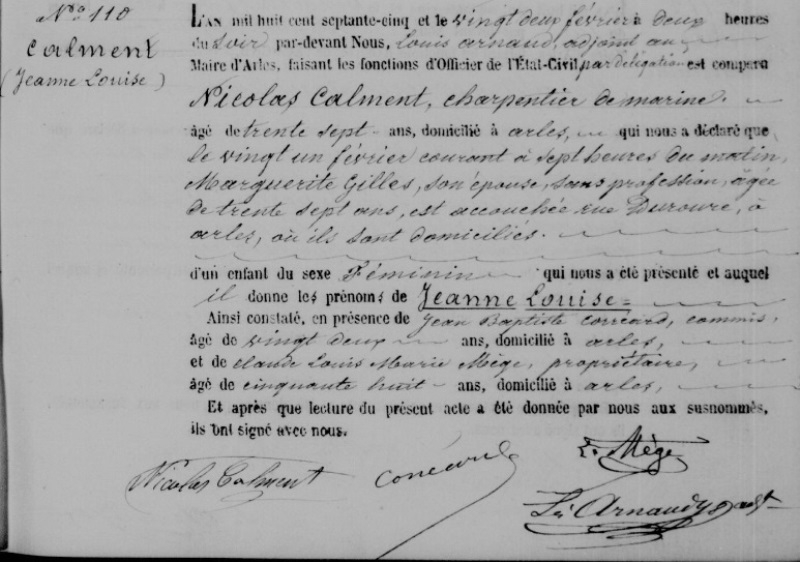 N.º 110
Calment
(Jeanne Louise)
L'AN mil huit cent septante-cinq et le vingt deux février à deux heures
du soir par-devant Nous, Louis Arnaud, adjoint au
Maire d'Arles, faisant les fonctions d'Officier de l'État-Civil par délégation est comparu
Nicolas Calment, charpentier de marine
âgé de trente sept ans, domicilié à arles, qui nous a déclaré que
le vingt un février courant à sept heures du matin,
Marguerite Gilles, son épouse, sans profession, âgée
de trente sept ans, est accouchée rue Duroure, à
arles, où ils sont domiciliés.
d'un enfant du sexe Féminin qui nous a été présenté et auquel
il donne les prénoms de Jeanne Louise
Ainsi constaté, en présence de Jean Baptiste Corréard, commis,
âgé de vingt deux ans, domicilié à arles,
et de claude Louis Marie Mège, propriétaire,
âgé de cinquante huit ans, domicilié à arles,
Et après que lecture du présent acte a été donnée par nous aux susnommés,
ils ont signé avec nous.
Nicolas Calment Corréard L. Mège
Ls Arnaud adjt